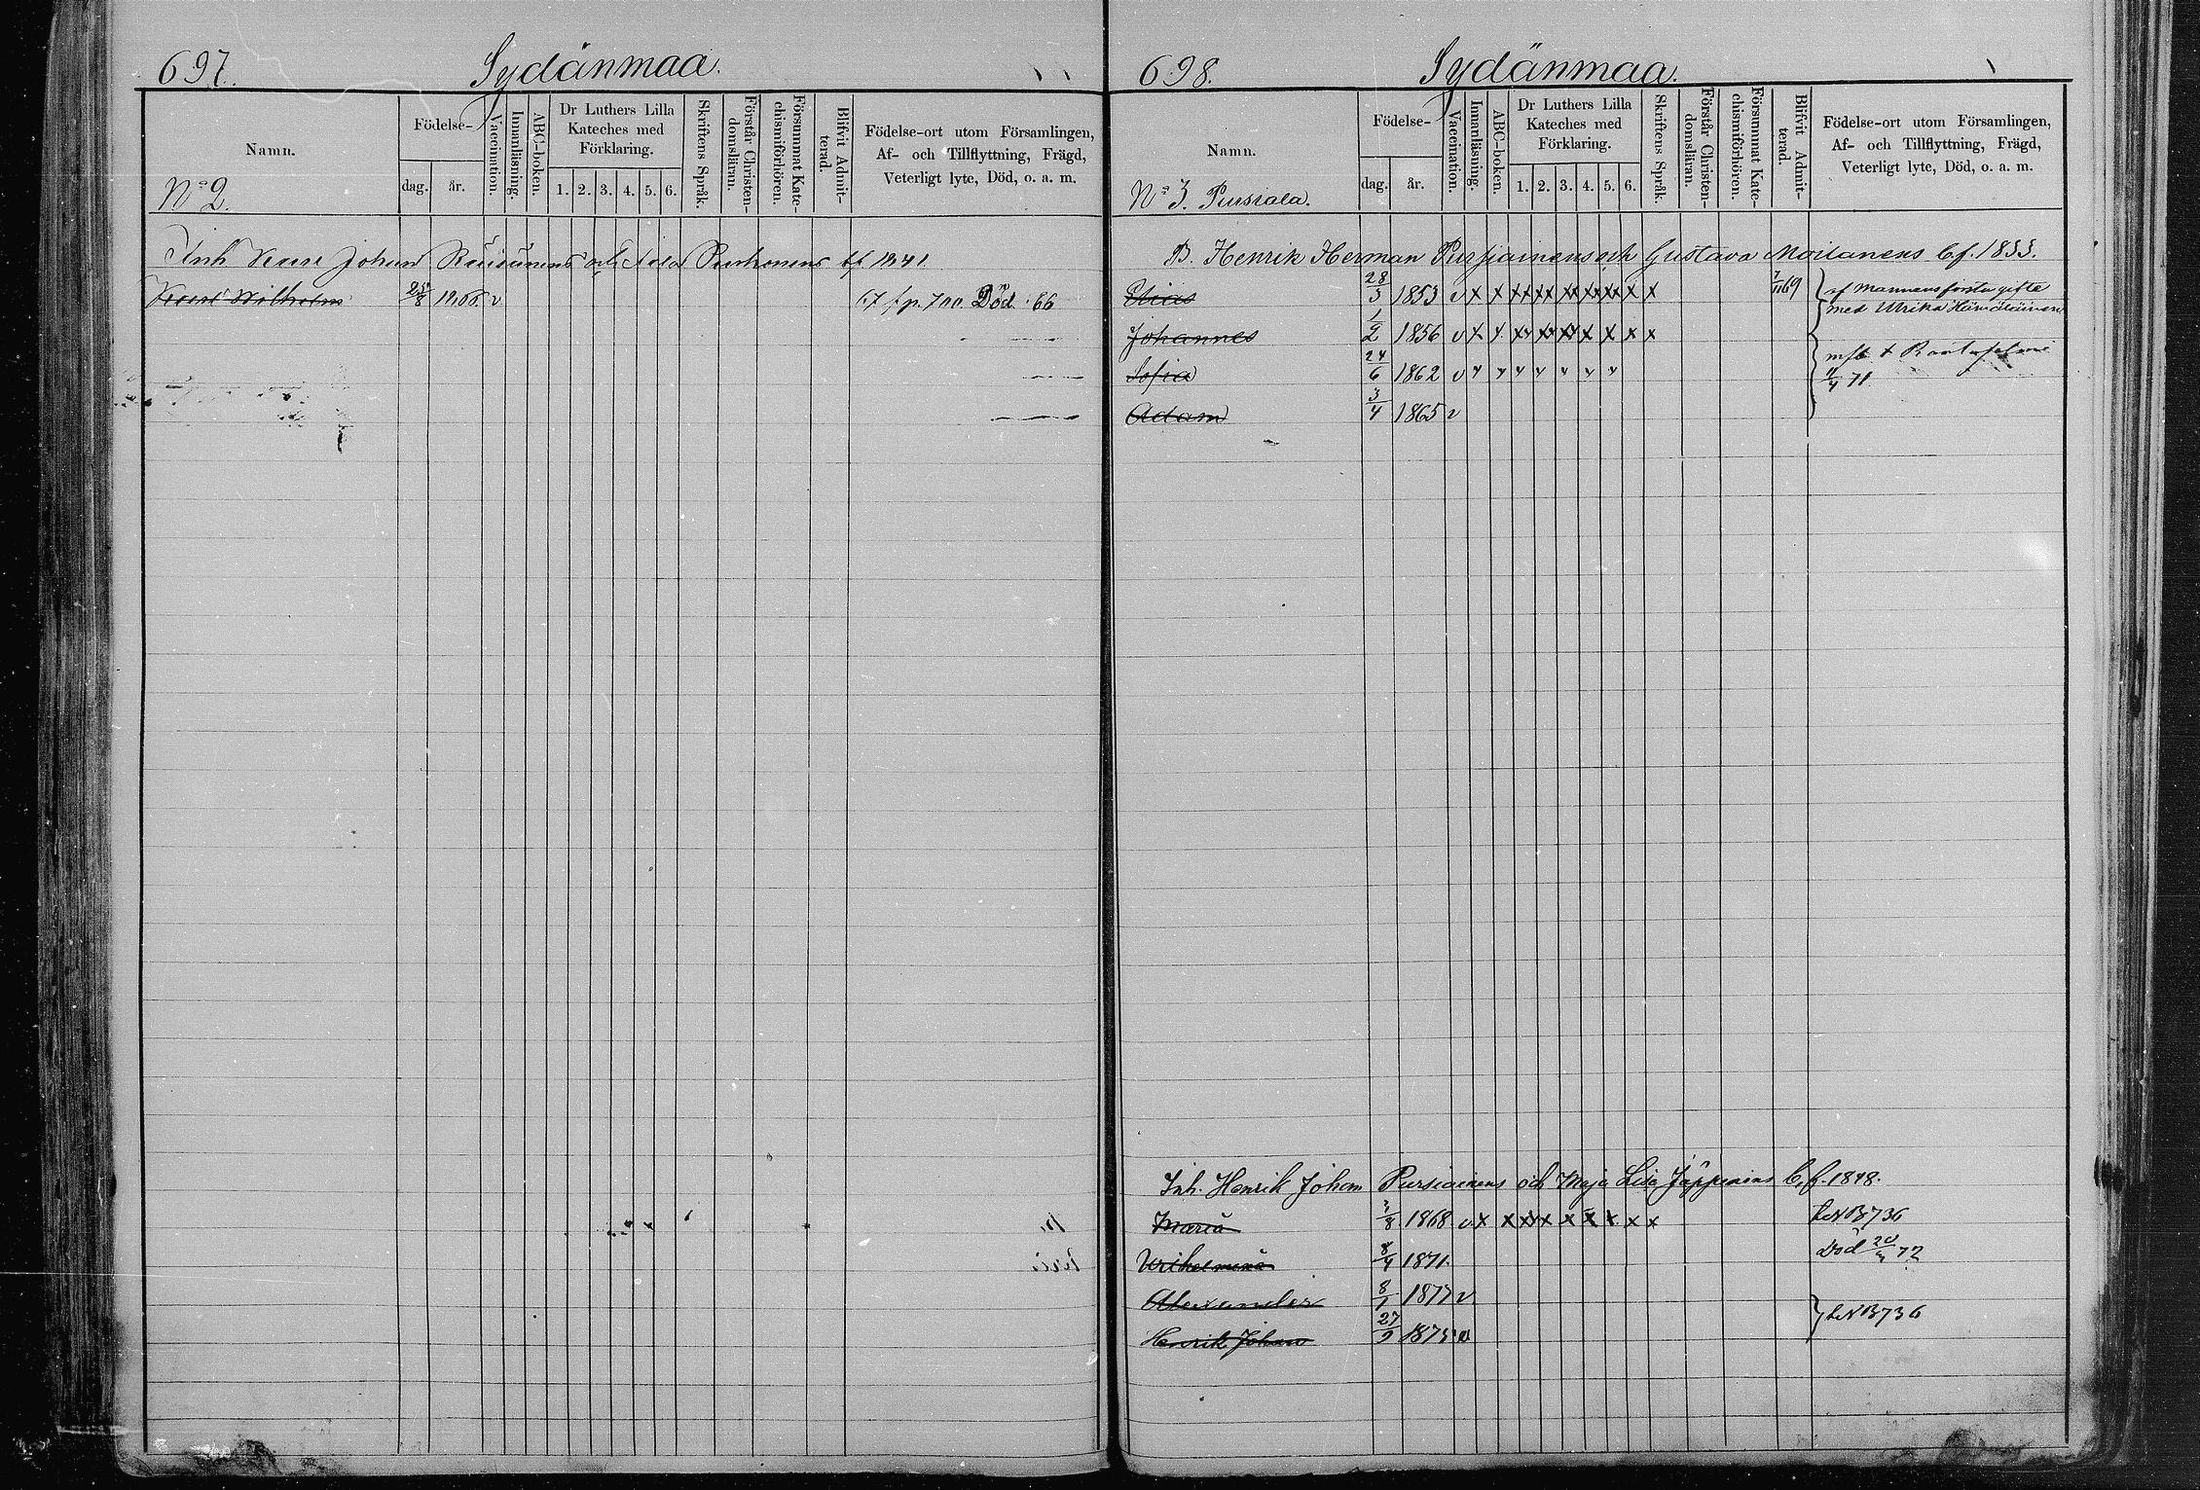 697.
Sydänmaa.
Namn.
Födelse-
dag.
år.
Vaccination.
Innanläsning.
ABC-boken.
Dr Luthers Lilla
Kateches med
Förklaring.
1. 2. 3. 4. 5. 6.
Skriftens Språk.
Förstår Christen-
domsläran.
Försummat Kate-
chismiförhören.
Blifvit Admit-
terad.
Födelse-ort utom Församlingen,
Af- och Tillflyttning, Frägd,
Veterligt lyte, Död, o. a. m.
No 2.
Inh Johan och
Wilhelm v Död 66
698.
Sydänmaa.
Namn.
Födelse-
dag.
år.
Vaccination.
Innanläsning.
ABC-boken.
Dr Luthers Lilla
Kateches med
Förklaring.
1. 2. 3. 4. 5. 6.
Skriftens Språk.
Förstår Christen-
domsläran.
Försummat Kate-
chismiförhören.
Blifvit Admit-
terad.
Födelse-ort utom Församlingen,
Af- och Tillflyttning, Frägd,
Veterligt lyte, Död, o. a. m.
No 3. Pursiala.
B. Henrik Herman Pursiainens och Gustava Moilanens C.f. 1833.
Elias 28/3 1853 v x x x x x x x x x x 69 af mannens första gifte
med Ulrika
Johannes 1/2 1856 v x x x x x x x x x x
Sofia 24/6 1862 v
4/4 71
Adam 3/4 1865 v
Inh. Henrik Johan Pursiainens och Maja Lisa Jäppinins C.f. 1848.
Maria 1868 v x x x x x x x x x B736
Wilhelmina 8/4 1871 Död 72
Alexander 8/1 1877 v
B736
Henrik Johan 27/9 v